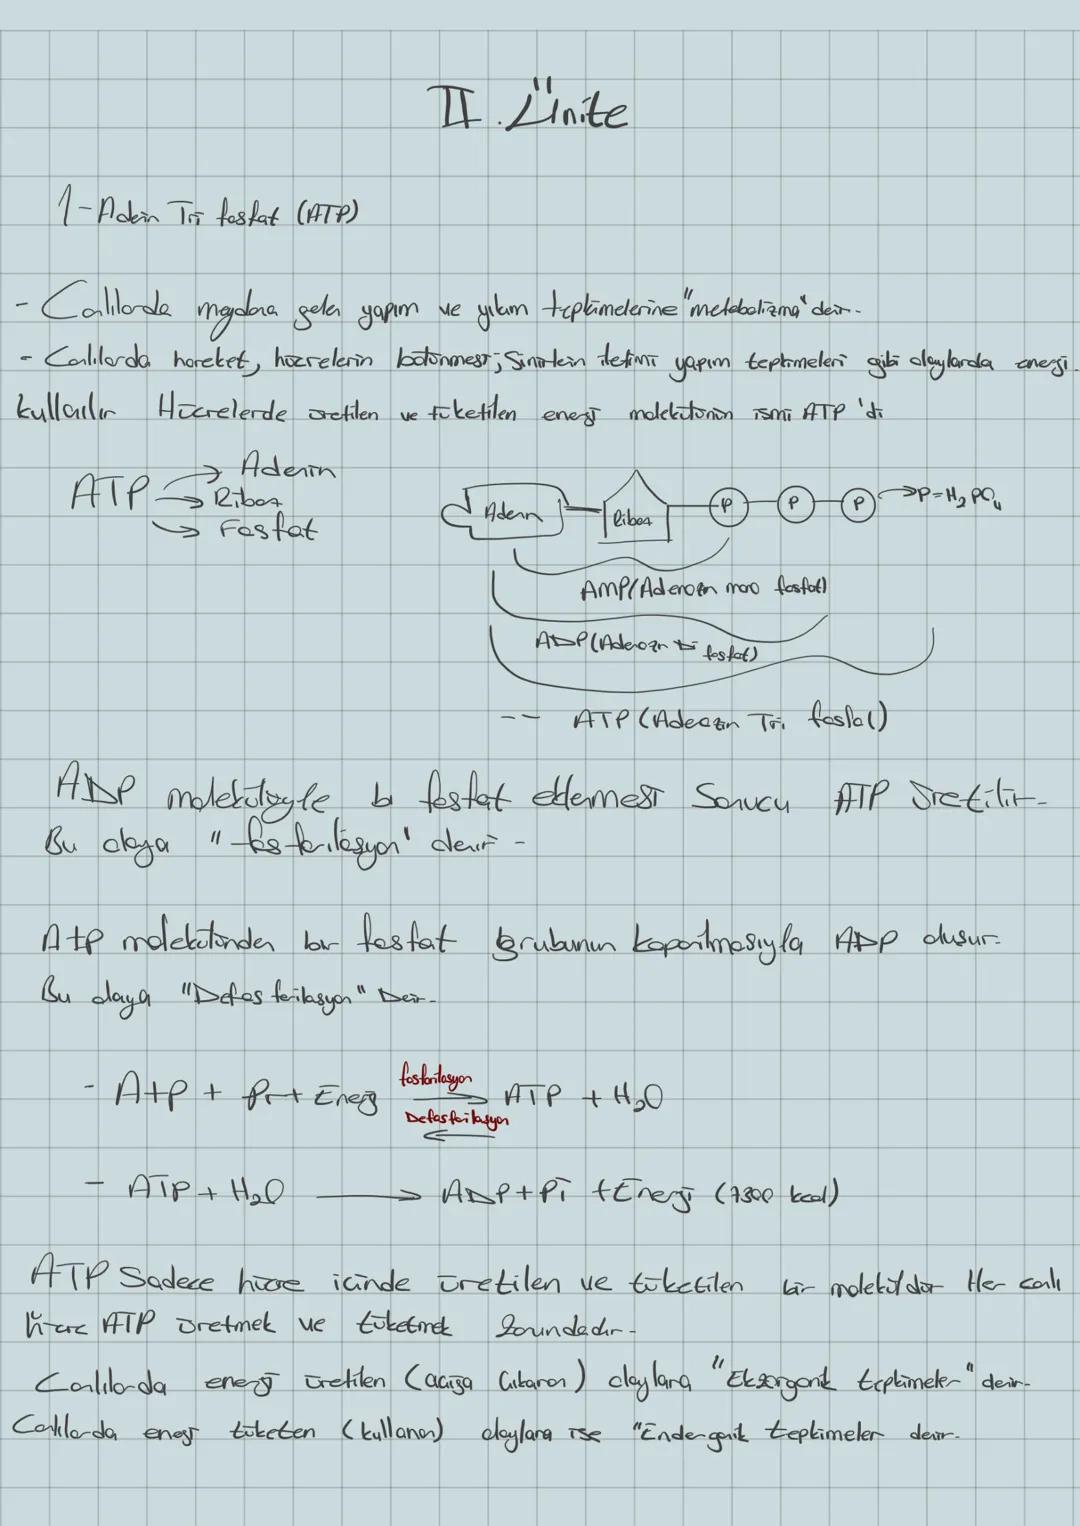 II. Ünite
1-Adein Tri fosfat (ATP)
- Canlılarda meydana gelen yapım ve yıkım tepkimelerine "metabolizma" denir.
- Canlılarda hareket, hücrelerin bölünmesi, Sinirlein iletimi yapım tepkimeleri gibi olaylarda enerji
kullanılır Hücrelerde üretilen ve tüketilen enerji molekülünün ismi ATP 'di
ATP → Adenin
→ Riboz
→ Fosfat
Adenin Riboz P P P → P=H₂PO₄
AMP (Adenozin mono fosfat)
ADP (Adenozin Di fosfat)
-- ATP (Adenozin Tri fosfat)
ADP molekülüyle bi fosfat eklenmesi Sonucu ATP üretilir.
Bu olaya "fosforilasyon" denir -
Atp molekülünden bir fosfat grubunun koparılmasıyla ADP oluşur.
Bu olaya "Defosforilasyon" Denir.
- Atp + Pi + Enerji fosforilasyon → ATP + H₂O
Defosforilasyon ←
- ATP + H₂O → ADP + Pi + Enerji (7300 kcal)
ATP Sadece hücre içinde üretilen ve tüketilen bir moleküldür Her canlı
hücre ATP üretmek ve tüketmek Zorundadır -
Canlılarda enerji üretilen (açığa Çıkaran) olaylara "Ekzergonik tepkimeler" denir.
Canlılarda enerji tüketen (kullanan) olaylara ise "Endergonik tepkimeler denir.